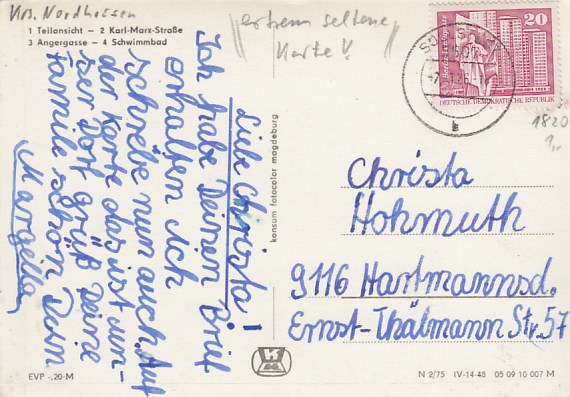 Krs. Nordhausen
"extrem seltene
Karte"!
1 Teilansicht – 2 Karl-Marx-Straße
3 Angergasse – 4 Schwimmbad
Liebe Christa!
Ich habe Deinen Brief
erhalten ich
schreibe nun auch. Auf
der Karte das ist un-
ser Dorf. Grüß Deine
Familie schön Dein
konsum fotocolor magdeburg
20
DEUTSCHE DEMOKRATISCHE REPUBLIK
1820
1,-
Christa
Hohmuth
9116 Hartmannsd.
Ernst-Thälmann Str. 57
EVP -,20-M
N 2/75 IV-14-48 05 09 10 007 M